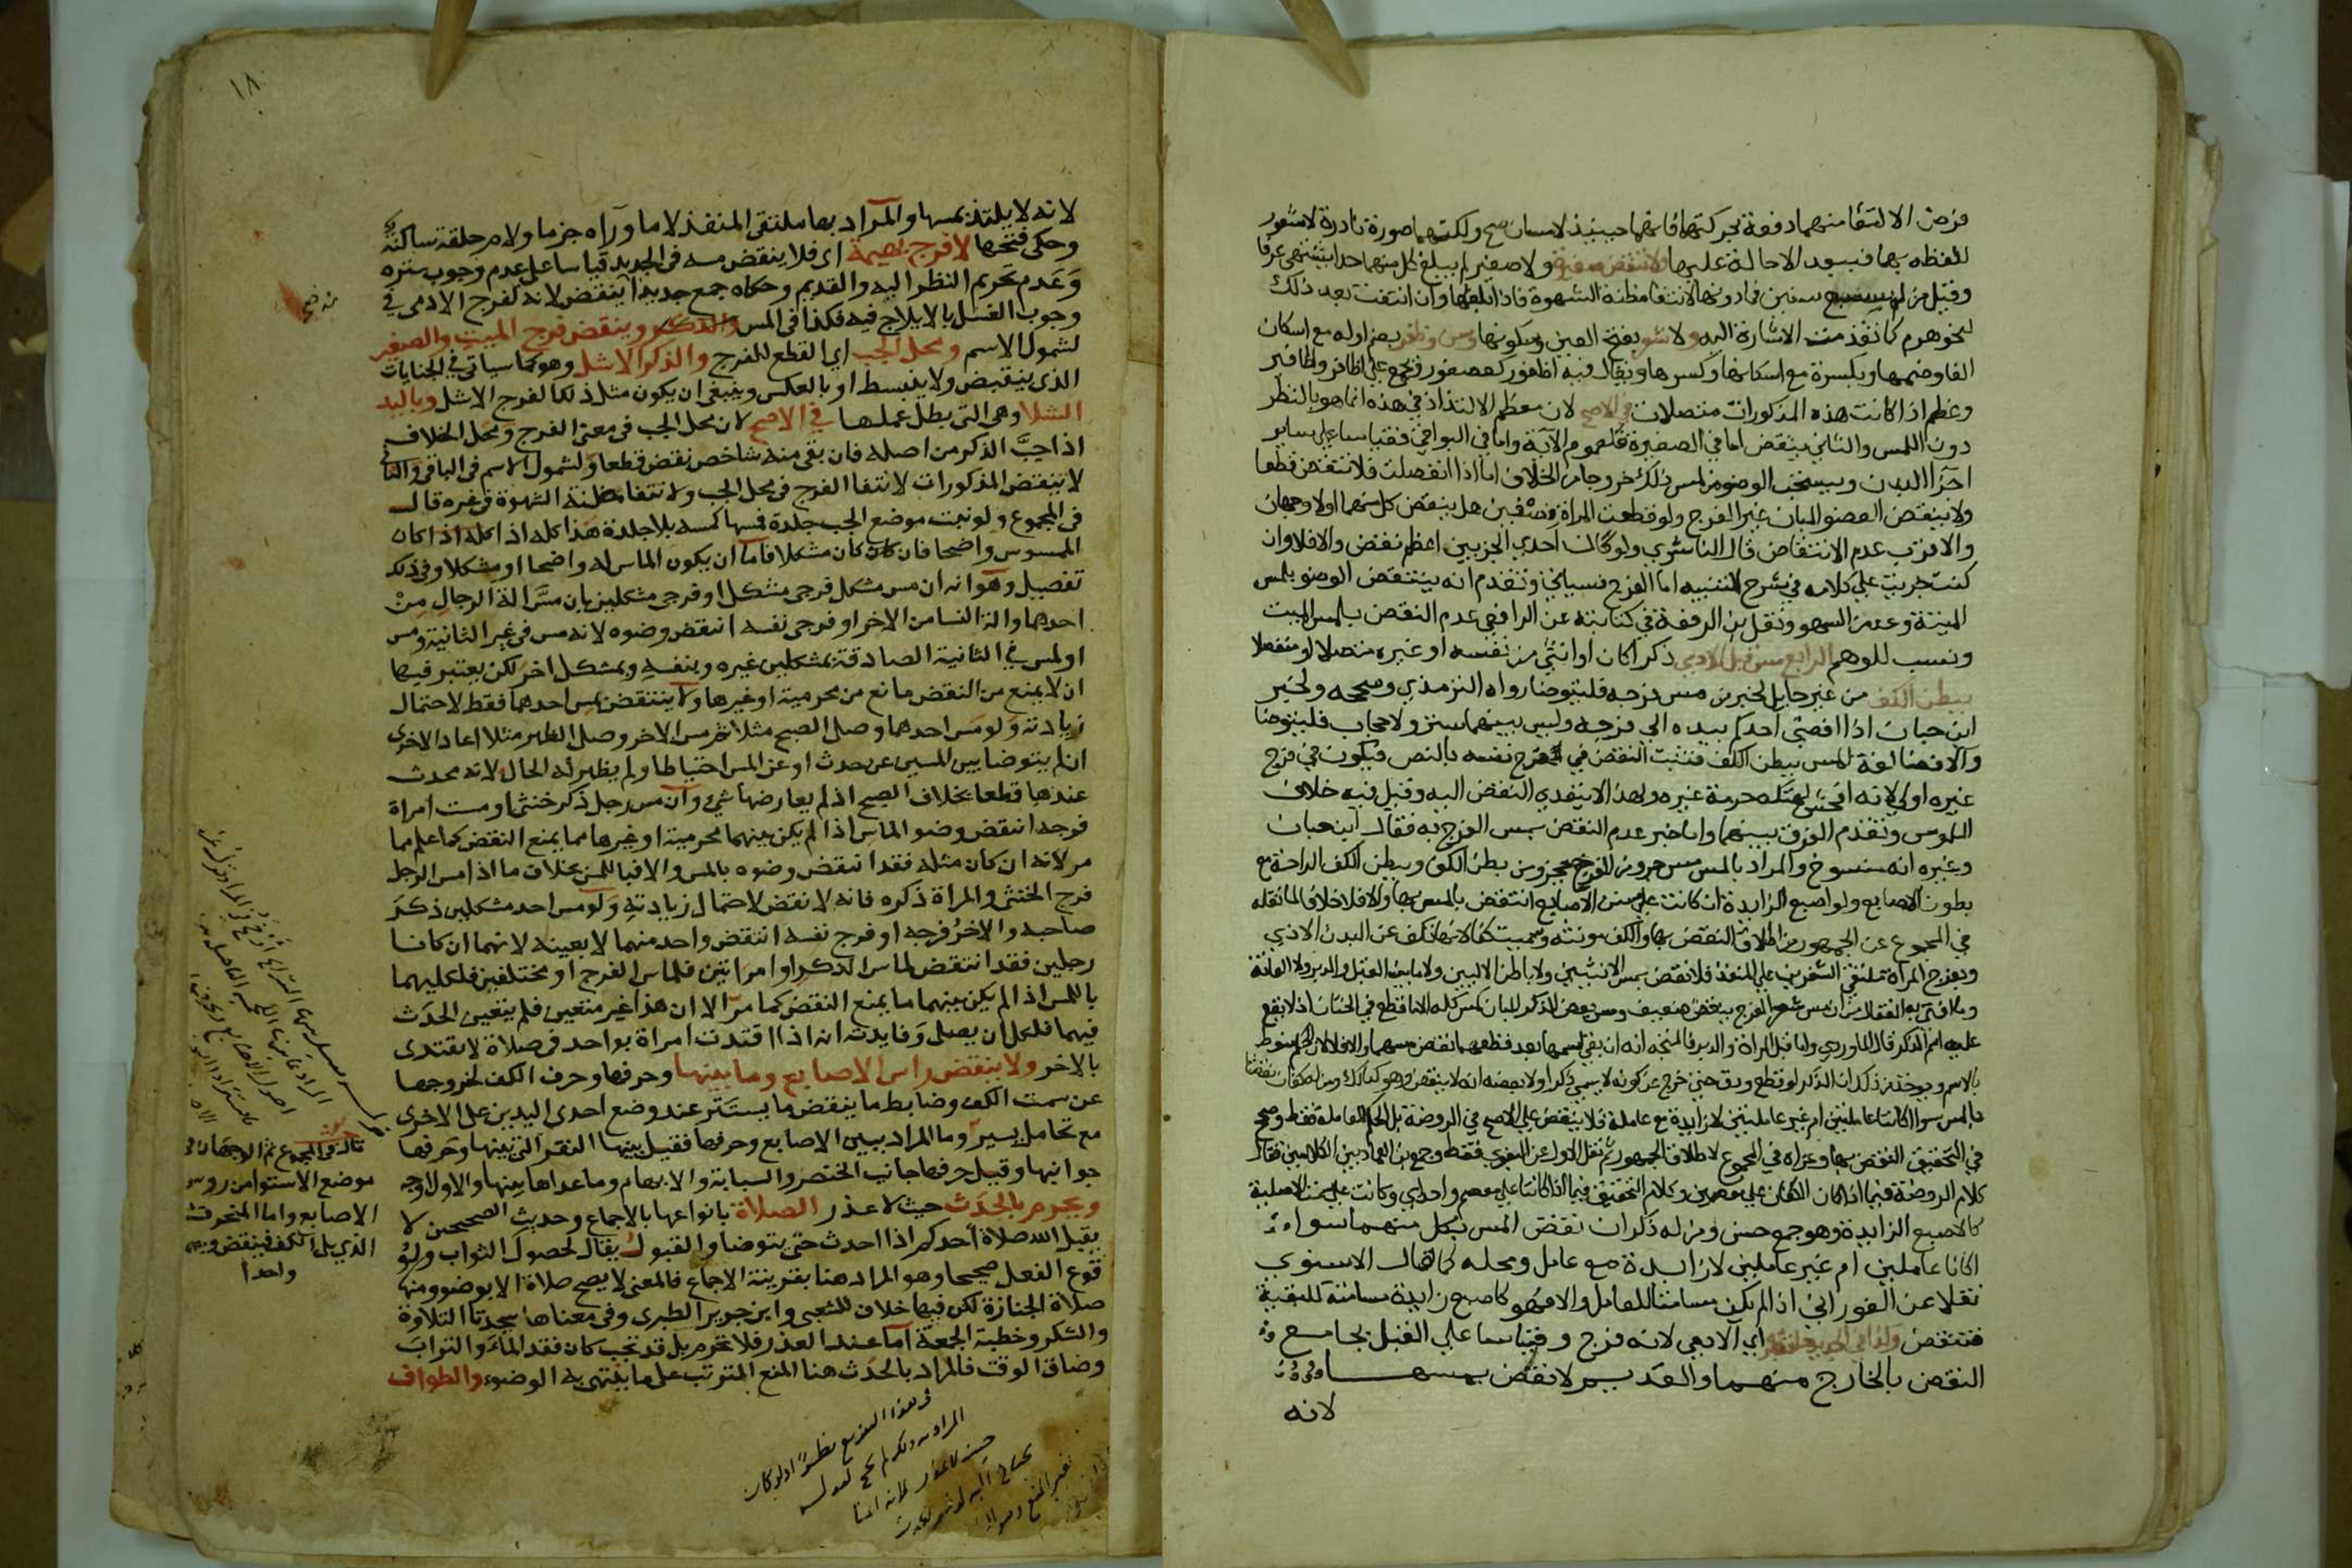 فرض الالتقا منهما دفعة بحركتهما فانهما حينئذ لامسان صح ولكنهما صورة نادرة لا شعور
للفظه بها فيبعد الاحالة عليها لا تنقض صغيرة ولا صغير لم يبلغ كل منهما حدا يشتهى عرفا
وقيل من له سبع سنين فما دونها لانتفا مظنة الشهوة فاذا بلغها وان انتفت بعد ذلك
لنحو هرم كما تقدمت الاشارة اليه ولا شعر بفتح العين وسكونها وسن وظفر بضم اوله مع اسكان
الفا وضمها وبكسره مع اسكانها وكسرها ويقال فيه اظفور كعصفور ويجمع على اظافر واظافير
وعظم اذا كانت هذه المذكورات متصلات في الاصح لان معظم الالتذاذ في هذه انما هو بالنظر
دون اللمس والثاني ينقض اما في الصغيرة فلعموم الآية واما في البواقي فقياسا على ساير
اجزا البدن ويستحب الوضو من لمس ذلك خروجا من الخلاف اما اذا انفصلت فلا تنقض قطعا
ولا ينقض العضو المبان غير الفرج ولو قطعت المراة نصفين هل ينقض كل منهما اولا وجهان
والاقرب عدم الانتقاض قال الناشري ولو كان احدي الجزيين اعظم نقض والا فلا وان
كنت جريت على كلامه في شرح التنبيه اما الفرج فسياتي وتقدم انه ينتقض الوضو بلمس
الميتة وعن السهو ونقل ابن الرفعة في كتابته عن الرافعي عدم النقض بلمس الميت
ونسب للوهم الرابع مس قبل الادمي ذكرا كان او انثى من نفسه او غيره متصلا او منفصلا
ببطن الكف من غير حايل لخبر من مس فرجه فليتوضا رواه الترمذي وصححه ولخبر
ابن حبان اذا افضى احدكم بيده الي فرجه وليس بينهما ستر ولا حجاب فليتوضا
والافضا لغة المس ببطن الكف فثبت النقض في فرج نفسه بالنص فيكون في فرج
غيره اولى لانه افحش لهتكه حرمة غيره ولهذا لا يتعدي النقض اليه وقيل فيه خلاف
الملموس وتقدم الفرق بينهما واما خبر عدم النقض بمس الفرج به فقال ابن حبان
وغيره انه منسوخ والمراد بالمس مس جزو من الفرج بجزو من بطن الكف وبطن الكف الراحة مع
بطون الاصابع ولو اصبع الزايدة ان كانت على سنن الاصابع انتقض بالمس بها والا فلا خلافا لما نقله
في المجموع عن الجمهور من اطلاق النقض بها والكف مونثه وسميت كفا لانها تكف عن البدن الاذي
وبفرج المراة ملتقى الشفرين على المنفذ فلا نقض بمس الانثيين ولا باطن الاليين ولا ما بين القبل والدبر ولا العانة
وما افتى به القفال من ان مس شعر الفرج ينقض ضعيف ومس بعض الذكر المبان كمس كله الا ما قطع في الختان اذ لا يقع
عليه اسم الذكر قاله الماوردي واما قبل المراة والدبر فالمتجه انه ان بقي اسمهما بعد قطعهما نقض مسهما والا فلا لان الحكم منوط
بالاسم ويوخذ من ذلك ان الذكر لو قطع ودق حتى خرج عن كونه لا يسمي ذكرا ولا بعضه انه لا ينقض وهو كذلك ومن له كفان نقضتا
بالمس سوا اكانتا عاملتين ام غير عاملتين لا زايدة مع عاملة فلا ينقض على الاصح في الروضة بل الحكم للعاملة فقط وصحح
في التحقيق النقض بها وعزاه في المجموع لاطلاق الجمهور ثم نقل الاول عن البغوي فقط وجمع ابن العماد بين الكلامين فقال
كلام الروضة فيما اذا كان الكفان على معصمين وكلام التحقيق فيما اذا كانتا على معصم واحد وكانت على سمت الاصلية
كالاصبع الزايدة وهو جمع حسن ومن له ذكران نقض المس بكل منهما سواء
اكانا عاملين ام غير عاملين لا زايدة مع عامل ومحله كما قال الاسنوي
نقلا عن الفوراني اذا لم يكن مسامتا للعامل والا فهو كاصبع زايدة مسامتة للبقية
فتنقض وكذا في الجديد حلقة دبره اي الادمي لانه فرج وقياسا على القبل بجامع
النقض بالخارج منهما والقديم لا نقض بمسها
لانه
١٨
لانه لا يلتذ بمسها والمراد بها ملتقى المنفذ لا ما وراه جزما ولام حلقة ساكنة
وحكى فتحها لا فرج بهيمة اى فلا ينقض مسه فى الجديد قياسا على عدم وجوب ستره
وعدم تحريم النظر اليه والقديم وحكاه جمع جديدا ينقض لانه كفرج الادمى في
وجوب الغسل بالايلاج فيه فكذا فى المس وينقض فرج الميت والصغير
لشمول الاسم ومحل الجب اي القطع للفرج والذكر الاشل وهو كما سياتى في الجنايات
الذى ينقبض ولا ينبسط او بالعكس وينبغى ان يكون مثل ذلك الفرج الاشل وباليد
الشلا وهى التى بطل عملها في الاصح لان محل الجب فى معنى الفرج ومحل الخلاف
اذا جب الذكر من اصله فان بقى منه شاخص نقض قطعا ولشمول الاسم فى الباقى والثانى
لا تنقض المذكورات لانتفا الفرج فى محل الجب ولانتفا مظنة الشهوة فى غيره قال
فى المجموع ولو نبت موضع الجب جلدة فمسها كمسه بلا جلدة هذا كله اذا كان
الممسوس واضحا فان كان مشكلا فاما ان يكون الماس له واضحا او مشكلا وفى ذلك
تفصيل وهو انه ان مس مشكل فرجى مشكل او فرجى مشكلين بان مس الة الرجال من
احدهما والة النسا من الاخر او فرجى نفسه انتقض وضوه لانه مس فى غير الثانية ومس
او لمس في الثانية الصادقة بمشكلين غيره وبنفسه وبمشكل اخر لكن يعتبر فيها
ان لا يمنع من النقض مانع من محرمية او غيرها ولا ينتقض بمس احدهما فقط لاحتمال
زيادته ولو مس احدهما وصلى الصبح مثلا ثم مس الاخر وصلى الظهر مثلا اعاد الاخرى
ان لم يتوضا بين المسين عن حدث او عن المس احتياطا ولم يظهر له الحال لانه محدث
عندها قطعا بخلاف الصبح اذ لم يعارضها شىء وان مس رجل ذكر خنثى او مست امراة
فرجه انتقض وضو الماس اذا لم يكن بينهما محرمية او غيرها مما يمنع النقض كما علم مما
مر لانه ان كان مثله فقد انتقض وضوه بالمس والا فباللمس بخلاف ما اذا مس الرجل
فرج الخنثى والمراة ذكره فانه لا نقض لاحتمال زيادته ولو مس احد مشكلين ذكر
صاحبه والاخر فرجه او فرج نفسه انتقض واحد منهما لا بعينه لانهما ان كانا
رجلين فقد انتقض لماس الذكر او امراتين فلماس الفرج او مختلفين فلكليهما
باللمس اذا لم يكن بينهما ما يمنع النقض كما مر الا ان هذا غير متعين فلم يتعين الحدث
فيهما فلكل ان يصلى وفايدته انه اذا اقتدت امراة بواحد فى صلاة لا تقتدى
بالاخر ولا ينقض راس الاصابع وما بينها وحرفها وحرف الكف لخروجها
عن سمت الكف وضابط ما ينقض ما يستتر عند وضع احدى اليدين على الاخرى
مع تحامل يسير وما المراد ببين الاصابع وحرفها فقيل بينها النقر التى بينها وحرفها
جوانبها وقيل حرفها جانب الخنصر والسبابة والابهام وما عداها بينها والاول اوجه
ويحرم بالحدث حيث لا عذر الصلاة بانواعها بالاجماع وحديث الصحيحين لا
يقبل الله صلاة احدكم اذا احدث حتى يتوضا والقبول يقال لحصول الثواب ولو
قوع الفعل صحيحا وهو المراد هنا بقرينة الاجماع فالمعنى لا يصح صلاة الا بوضو ومنها
صلاة الجنازة لكن فيها خلاف للشعبى وابن جرير الطبرى وفى معناها سجدتا التلاوة
والشكر وخطبة الجمعة اما عند العذر فلا تحرم بل قد تجب كان فقد الماء والتراب
وضاق الوقت فالمراد بالحدث هنا المنع المترتب على ما ينتهى به الوضوء والطواف
قال فى المجموع ثم الوجهان فى
موضع الاستوا من روس
الاصابع واما المنحرف
الذي يلى الكف فينقض وجها
واحدا